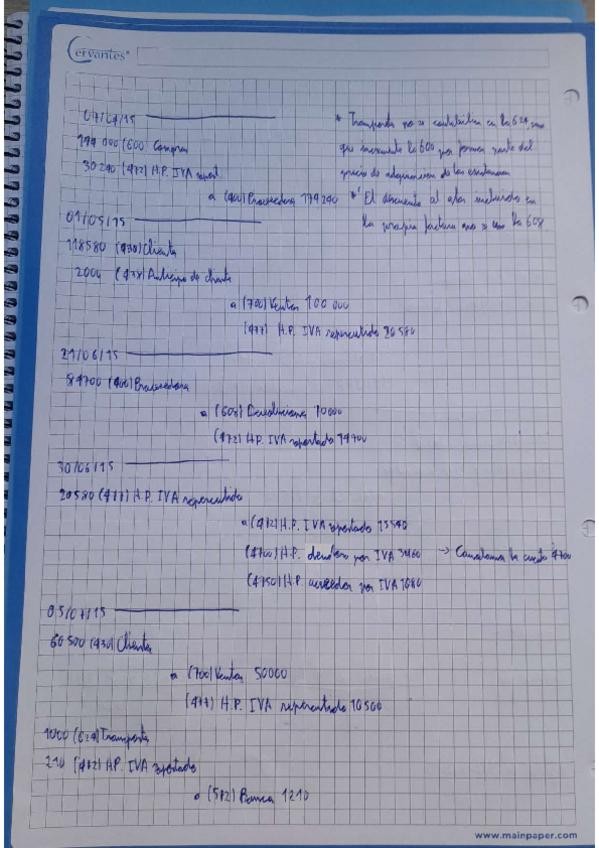 Cervantes
07/04/15
144 000 (600) Compras
30 240 (472) H.P. IVA soport.
a (400) Proveedores 174240
* Transportes no se contabiliza en la 624, sino
que incrementa la 600 por formar parte del
precio de adquisición de las existencias
* El descuento al estar incluido en
la propia factura no se usa la 608
01/05/15
118580 (430) Clientes
2000 (438) Anticipo de clientes
a (700) Ventas 100 000
(477) H.P. IVA repercutido 20 580
21/06/15
84700 (400) Proveedores
a (608) Devoluciones 70000
(472) H.P. IVA soportado 14700
30/06/15
20580 (477) H.P. IVA repercutido
a (472) H.P. IVA soportado 15540
(4700) H.P. deudora por IVA 3960 → Cancelamos la cuenta 4700
(4750) H.P. acreedora por IVA 1080
05/07/15
60 500 (430) Clientes
a (700) Ventas 50000
(477) H.P. IVA repercutido 10500
1000 (624) Transportes
210 (472) HP. IVA soportado
a (572) Bancos 1210
www.mainpaper.com